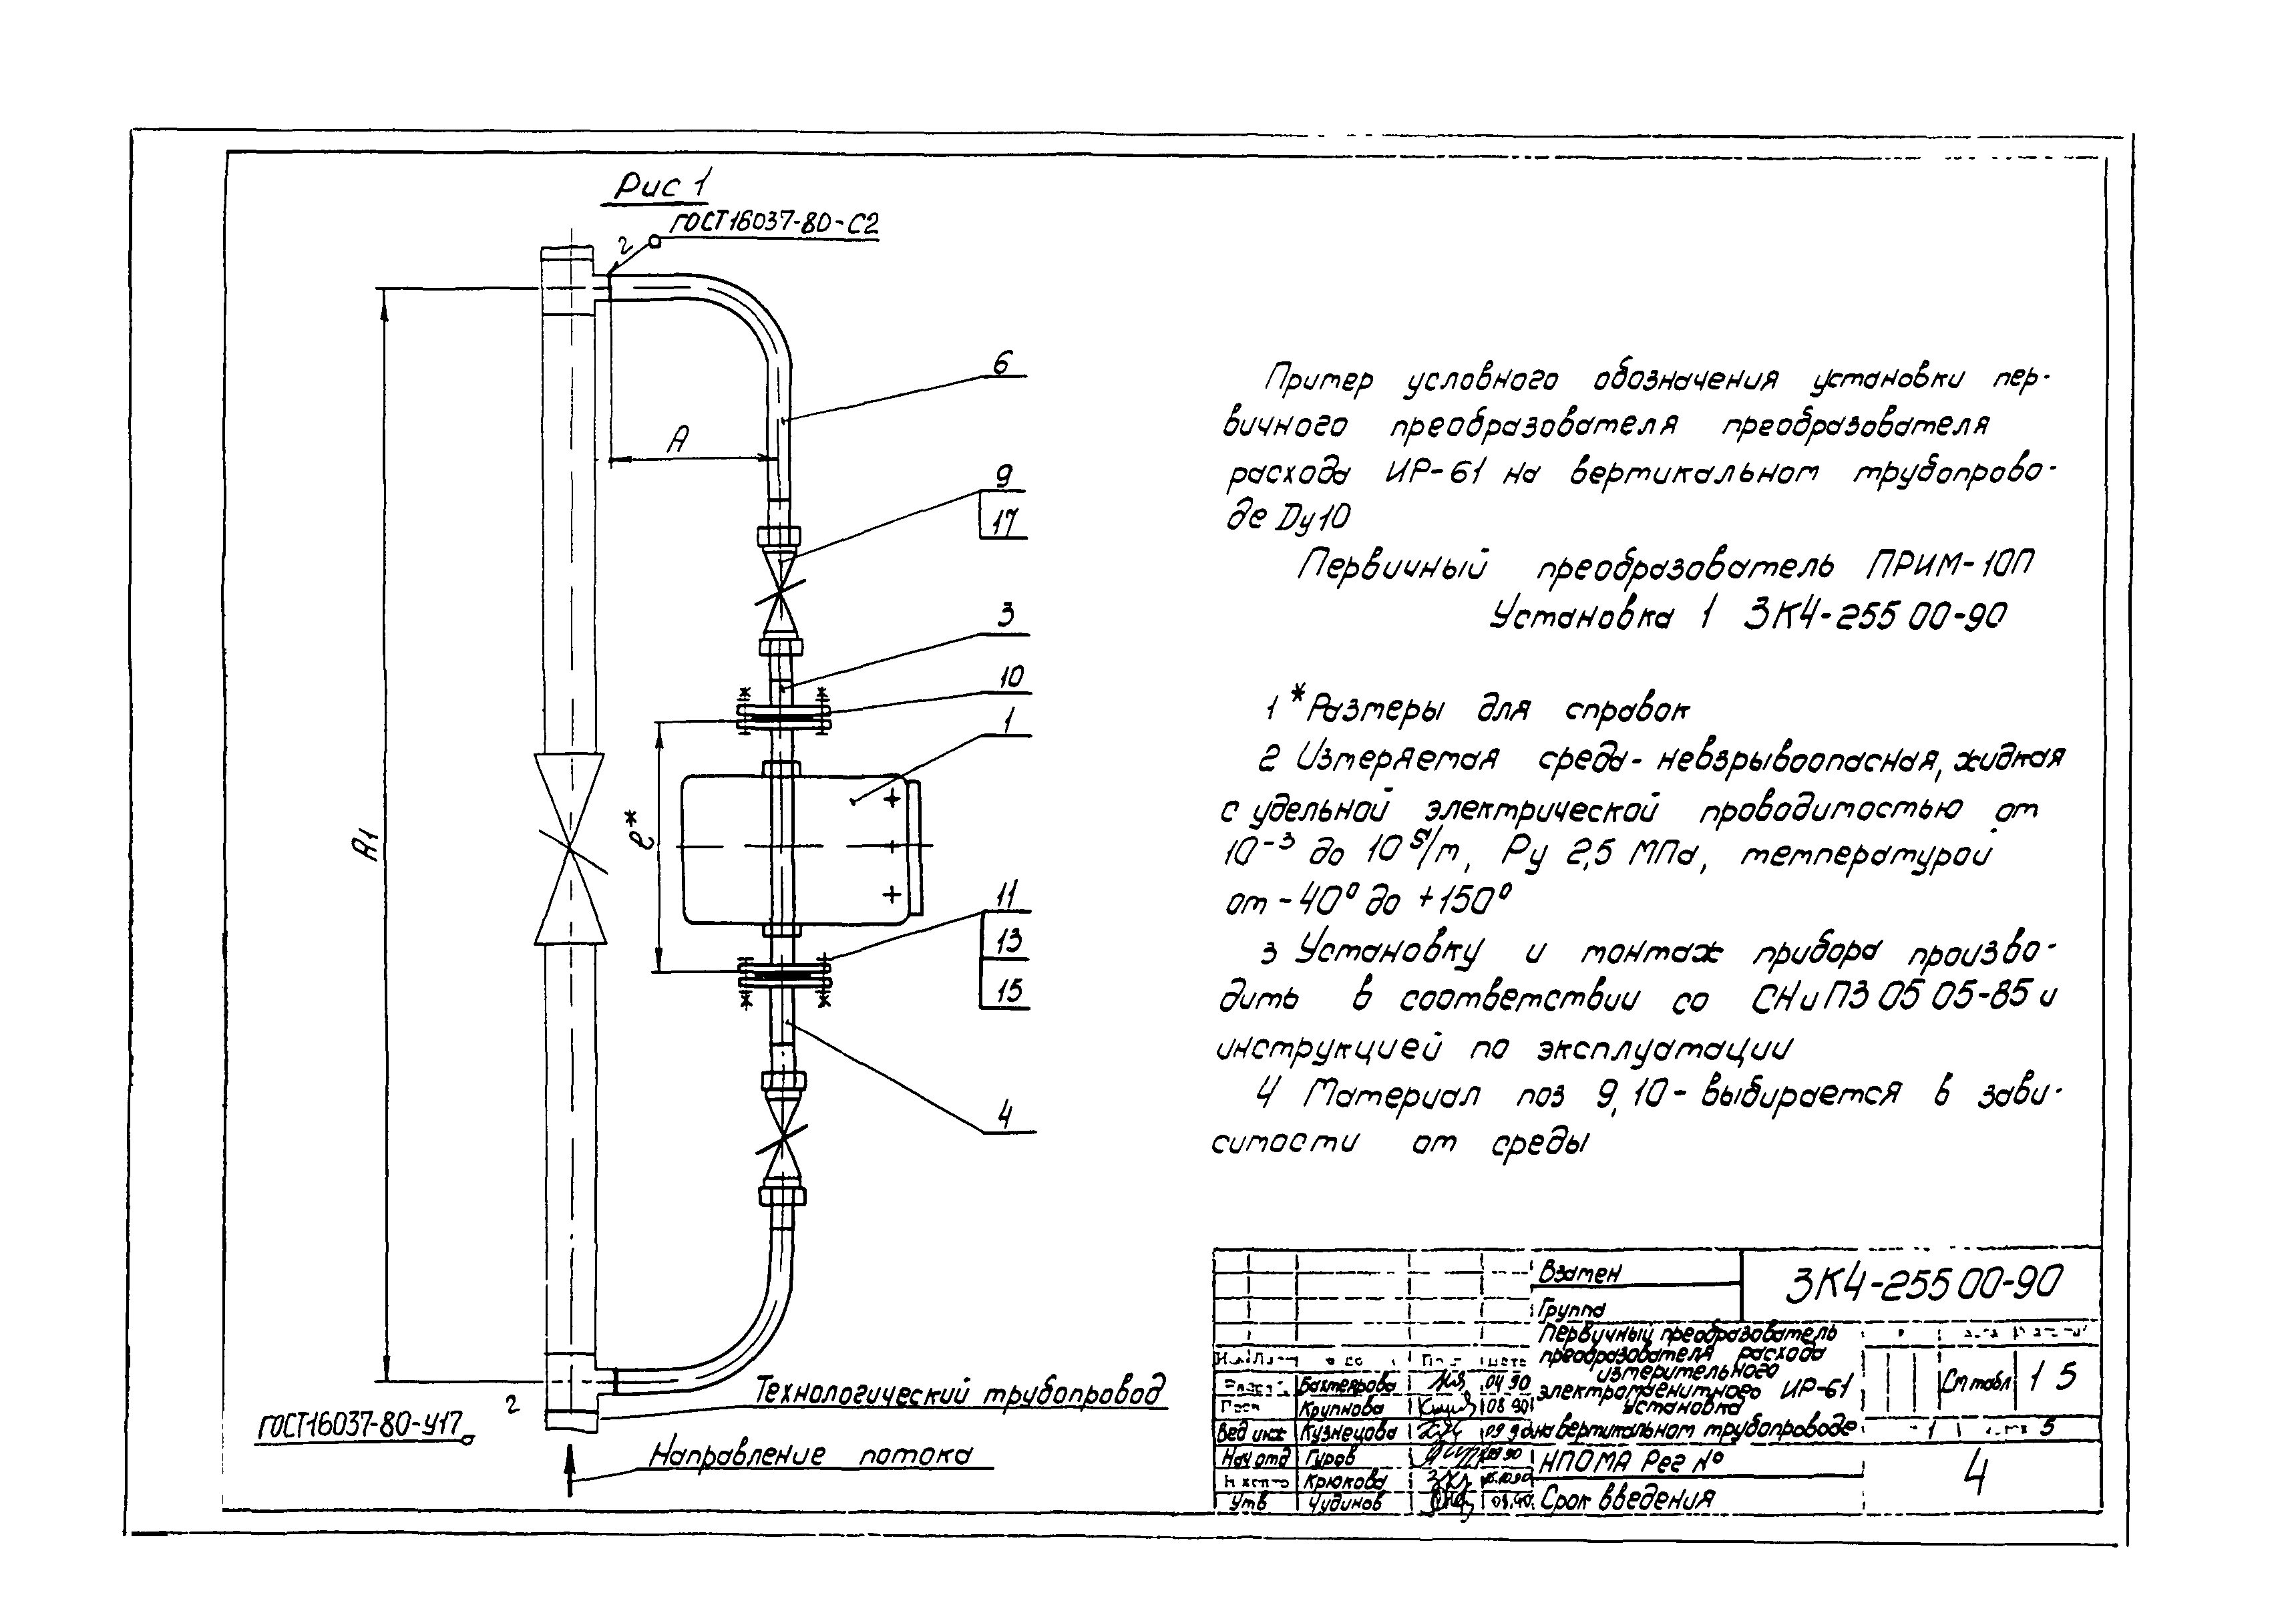 Рис 1
ГОСТ16037-80-С2
2
6
А
9
17
3
10
1
А1
ℓ*
11
13
15
4
Технологический трубопровод
2
ГОСТ16037-80-У17
Направление потока
Пример условного обозначения установки пер-
вичного преобразователя преобразователя
расхода ИР-61 на вертикальном трубопрово-
де Dу10
Первичный преобразователь ПРИМ-10П
Установка 1 ЗК4-255 00-90
1 *Размеры для справок
2 Измеряемая среда - невзрывоопасная, жидкая
с удельной электрической проводимостью от
10⁻³ до 10 S/m, Ру 2,5 МПа, температурой
от -40° до +150°
3 Установку и монтаж прибора произво-
дить в соответствии со СНиП3 05 05-85 и
инструкцией по эксплуатации
4 Материал поз 9, 10 - выбирается в зави-
симости от среды
Взамен
Группа
ЗК4-255 00-90
Первичный преобразователь
преобразователя расхода
измерительного
электромагнитного ИР-61
Установка
на вертикальном трубопроводе
См табл
1 5
1
5
Бахтеярова 04 90
Крупнова 08 90
Вед инж Кузнецова 09 90
Нач отд Гуров
Крюкова
Утв Чудинов
НПОМА Рег №
Срок введения
4